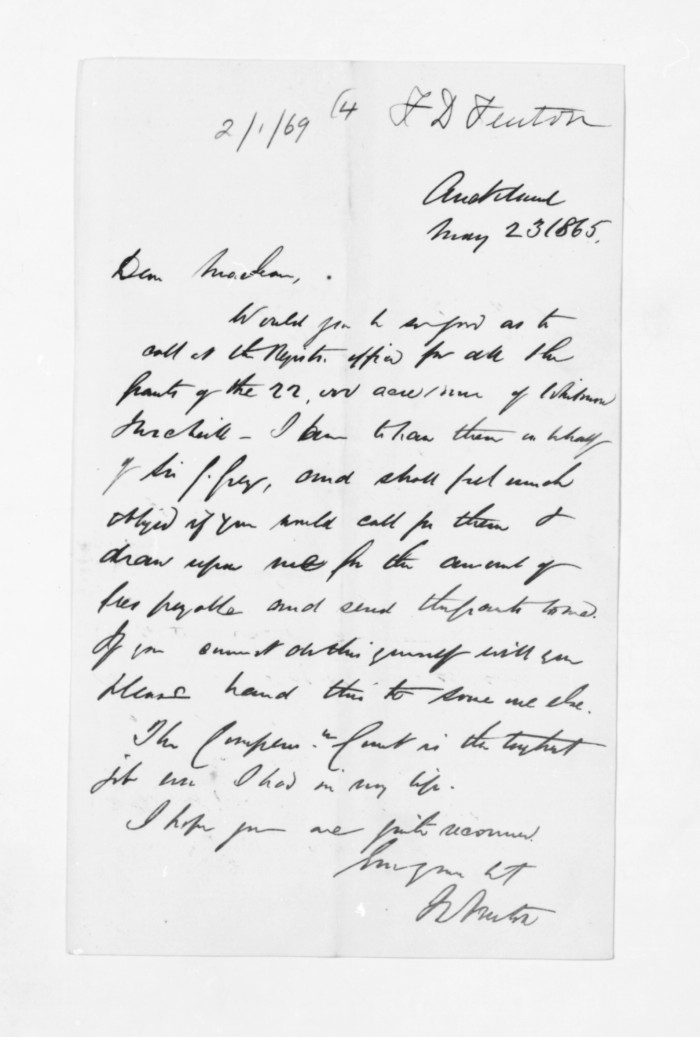 2/1/69 (4 F D Fenton
Auckland
May 23 1865.
Dear Maclean,
Would you be so good as to
call at the Regist. office for all the
grants of the 22,000 acres of Whitmore
- I to have them on behalf
of Sir G. Grey, and shall feel much
obliged if you would call for them &
draw upon me for the amount of
fees payable and send the grants to me.
If you cannot do this yourself will you
please hand this to some one else.
The Compens.n Court is the toughest
job ever I had in my life.
I hope you are quite recovered.
F D Fenton